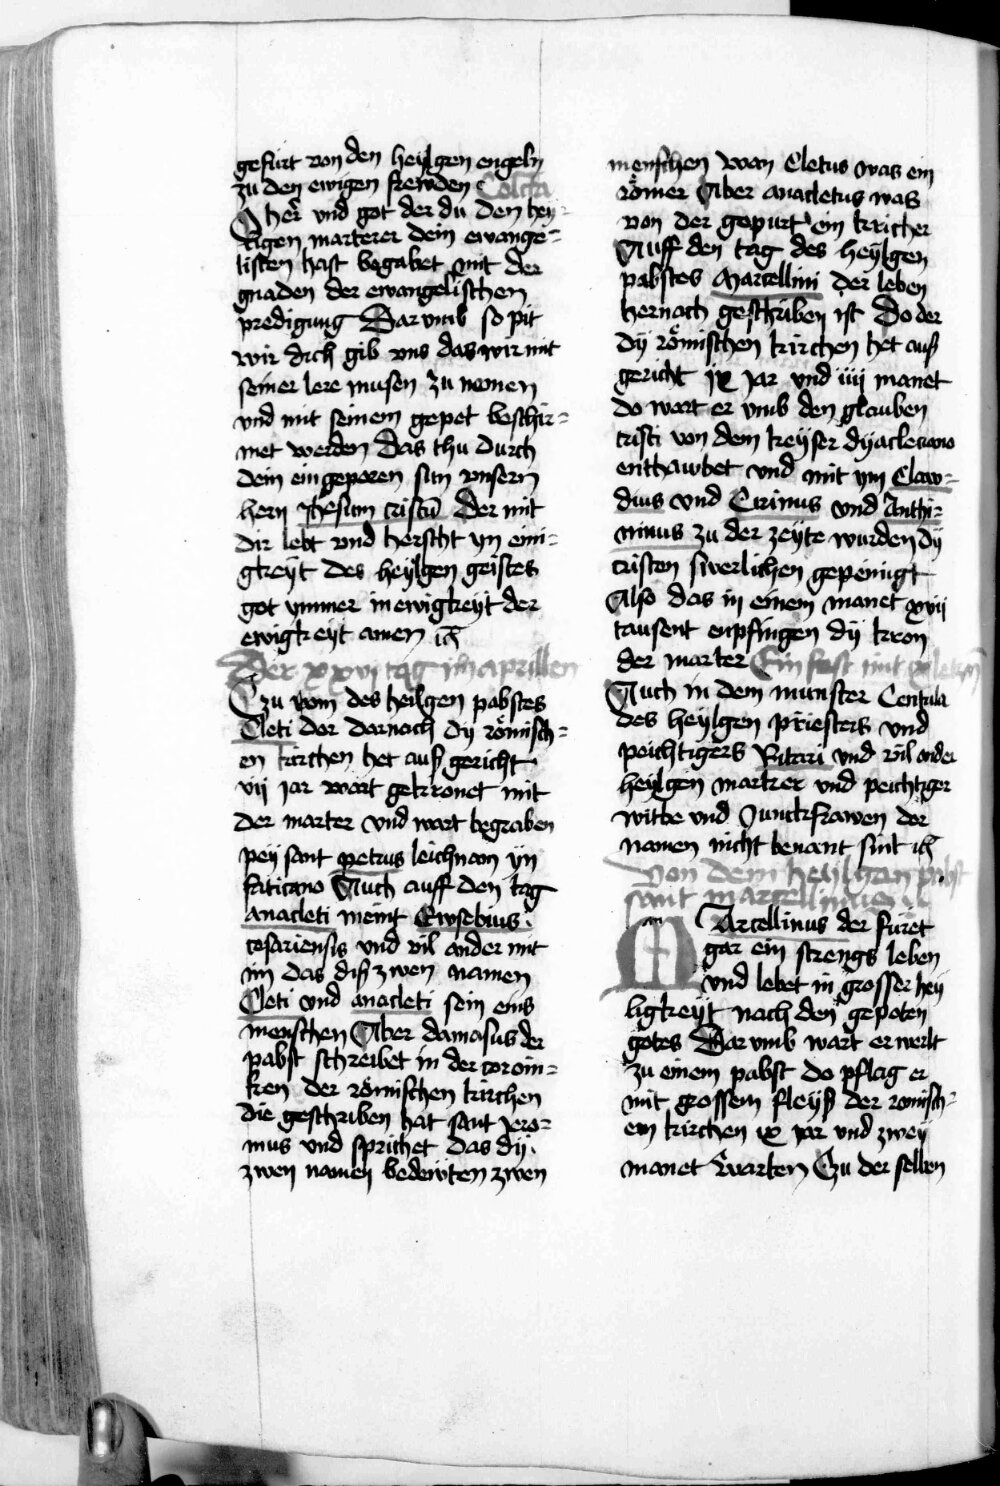 gefurt von den heylgen engeln
zu den ewigen frewden Colcta
O her vnd got der du den hey-
ligen marterer dein ewange-
listen hast begabet mit der
gnaden der ewangelischen
predigung Darvmb so pit
wir dich gib vns das wir mit
seiner lere musen zu nemen
vnd mit seinem gepet beschir-
met werden Das thu durch
dein eingeporen sun vnsern
hern Jhesum cristu Der mit
dir lebt vnd herscht yn eini-
gkeyt des heylgen geistes
got ymmer in ewigkeyt der
ewigkeyt amen
Der xxvi tag im aprillen
Czu rom des heilgen pabstes
Cleti der darnach dy römisch-
en kirchen het auß gericht
vij jar wart gekronet mit
der marter vnd wart begraben
pey sant petrus leichnam yn
faticano Auch auff den tag
anacleti meint Ewsebius
cesariensis vnd vil ander mit
im das diß zwen namen
Cleti vnd anacleti sein eins
menschen Aber damasus der
pabst schreibet in der coroni-
ken der römischen kirchen
die geschriben hat sant Jero-
mus vnd sprichet das dy
zwen namen bedewten zwen
menschen wan Cletus was ein
römer Aber anacletus was
von der gepurt ein kricher
Auff den tag des heylgen
pabstes Marcellini der leben
hernach geschriben ist Do der
dy römischen kirchen het auß
gericht ix jar vnd iiii manet
do wart er vmb den glauben
cristi von dem keyser dyacleciano
enthawbet vnd mit ym Claw-
dius vnd Cirinus vnd Anthi-
minus zu der zeyte wurden dy
cristen swerlichen gepeinigt
Also das in einem manet xvij
tausent enpfingen dy kron
der marter Ein fest mit
Auch in dem munster Centula
des heylgen priesters vnd
peichtigers Ritari vnd vil ander
heylgen martrer vnd peichtiger
witbe vnd Junckfrawen der
namen nicht benant sint
Von dem heyligen pabst
sant marcellinus
Marcellinus der furet
gar ein strengs leben
vnd lebet in grosser hey
ligkeyt nach den gepoten
gotes Darvmb wart er welt
zu einem pabst do pflag er
mit grossem fleyß der romisch-
en kirchen ix jar vnd zwey
manet warten Czu der selben